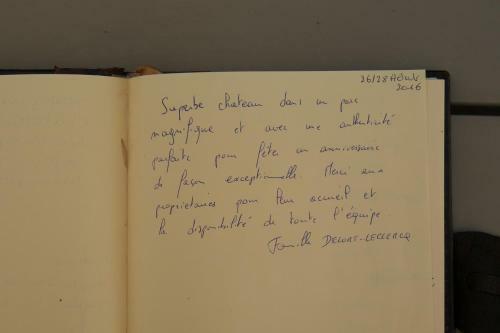 26/28 Août
2016
Superbe chateau dans un parc
magnifique et avec une authenticité
parfaite pour fêter un anniversaire
de façon exceptionnelle. Merci aux
propriétaires pour leur accueil et
la disponibilité de toute l'équipe.
Famille LECLERCQ